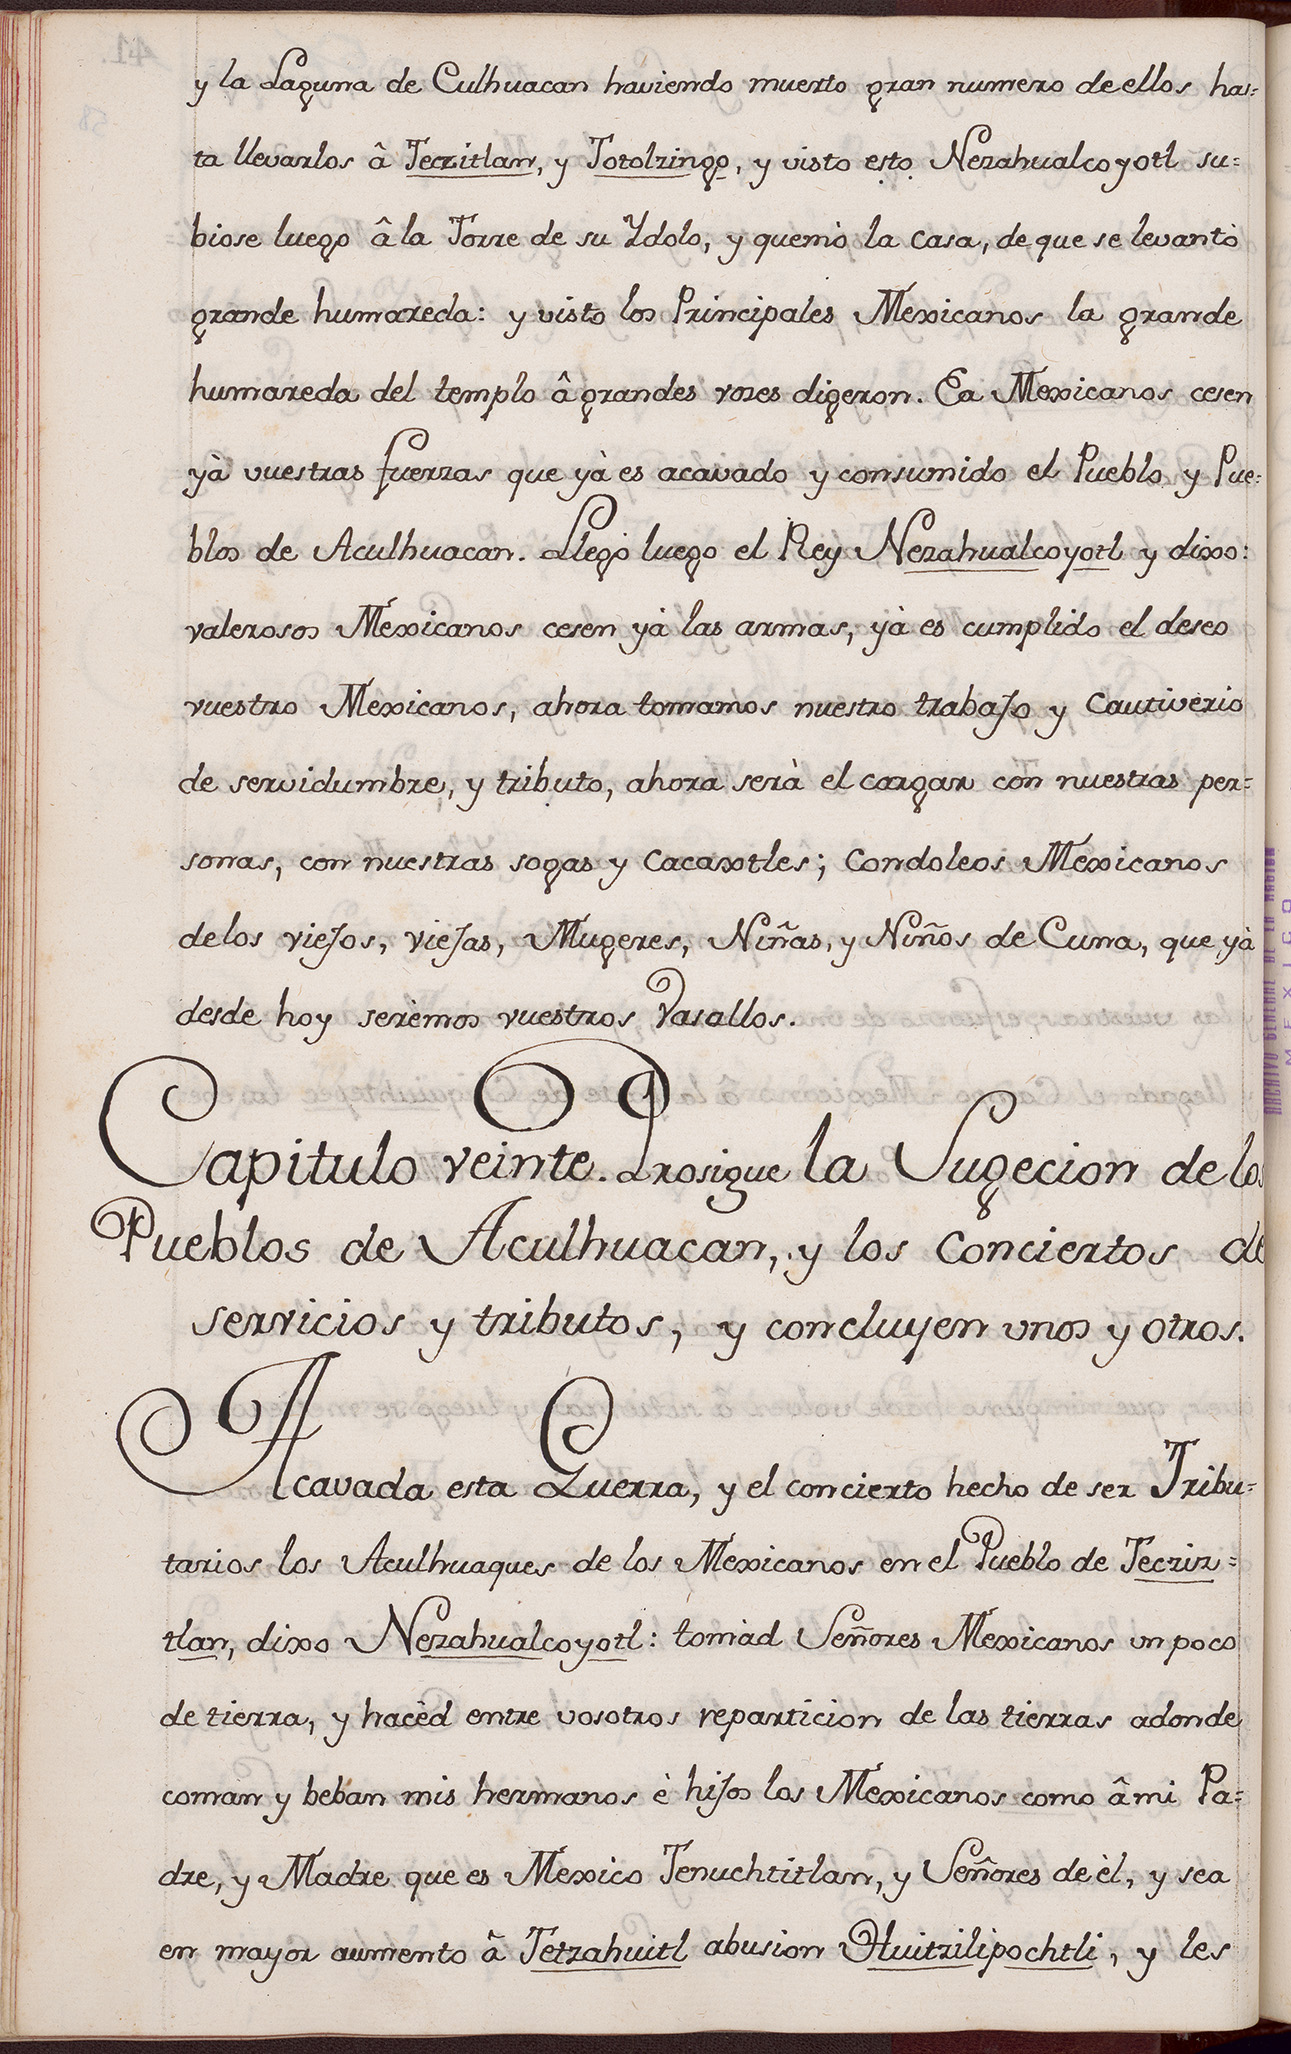 y la Laguna de Culhuacan haviendo muerto gran numero de ellos has=
ta llevarlos â Teczitlan, y Totolzingo, y visto esto Nezahualcoyotl su=
biose luego â la Torre de su Ydolo, y quemò la casa, de que se levantò
grande humareda: y visto los Principales Mexicanos la grande
humareda del templo â grandes vozes digeron. Ea Mexicanos cesen
yà vuestras fuerzas que yà es acavado y consumido el Pueblo y Pue=
blos de Aculhuacan. Llegò luego el Rey Nezahualcoyotl y dixo:
valerosos Mexicanos cesen yà las armas, yà es cumplido el deseo
vuestro Mexicanos, ahora tomamos nuestro trabajo y Cautiverio
de servidumbre, y tributo, ahora serà el cargar con nuestras per=
sonas, con nuestras sogas y Cacaxtles; Condoleos Mexicanos
de los viejos, viejas, Mugeres, Niñas, y Niños de Cuna, que yà
desde hoy serèmos vuestros Vasallos.
Capitulo veinte. Prosigue la Sugecion de los
Pueblos de Aculhuacan, y los Conciertos de
servicios y tributos, y concluyen unos y otros.
Acavada esta Guerra, y el concierto hecho de ser Tribu=
tarios los Aculhuaques de los Mexicanos en el Pueblo de Tecziz=
tlan, dixo Nezahualcoyotl: tomàd Señores Mexicanos un poco
de tierra, y hacèd entre vosotros reparticion de las tierras adonde
coman y beban mis hermanos è hijos los Mexicanos como â mi Pa=
dre, y Madre que es Mexico Tenuchtitlan, y Señores de èl, y sea
en mayor aumento â Tetzahuitl abusion Huitzilipochtli, y les
ARCHIVO GENERAL DE LA NACION
MEXICO